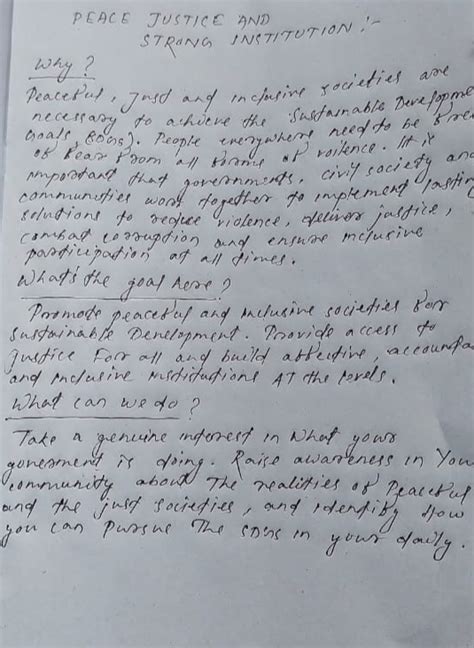 PEACE JUSTICE AND
STRONG INSTITUTION :-
Why?
Peaceful, Just and inclusive societies are
necessary to achieve the Sustainable Developme
Goals (SDGs). People everywhere need to be free
of fear from all forms of voilence. It is
important that governments, civil society and
communities work together to implement lasting
solutions to reduce violence, deliver justice,
combat corruption and ensure inclusive
participation at all times.
What's the goal here?
Promote peaceful and inclusive societies for
Sustainable Development. Provide access to
justice For all and build effective, accounta
and inclusive institutions AT the levels.
What can we do?
Take a genuine interest in What your
government is doing. Raise awareness in You
community about The realities of Peaceful
and the just societies, and identify How
you can Pursue The SDGs in your daily.